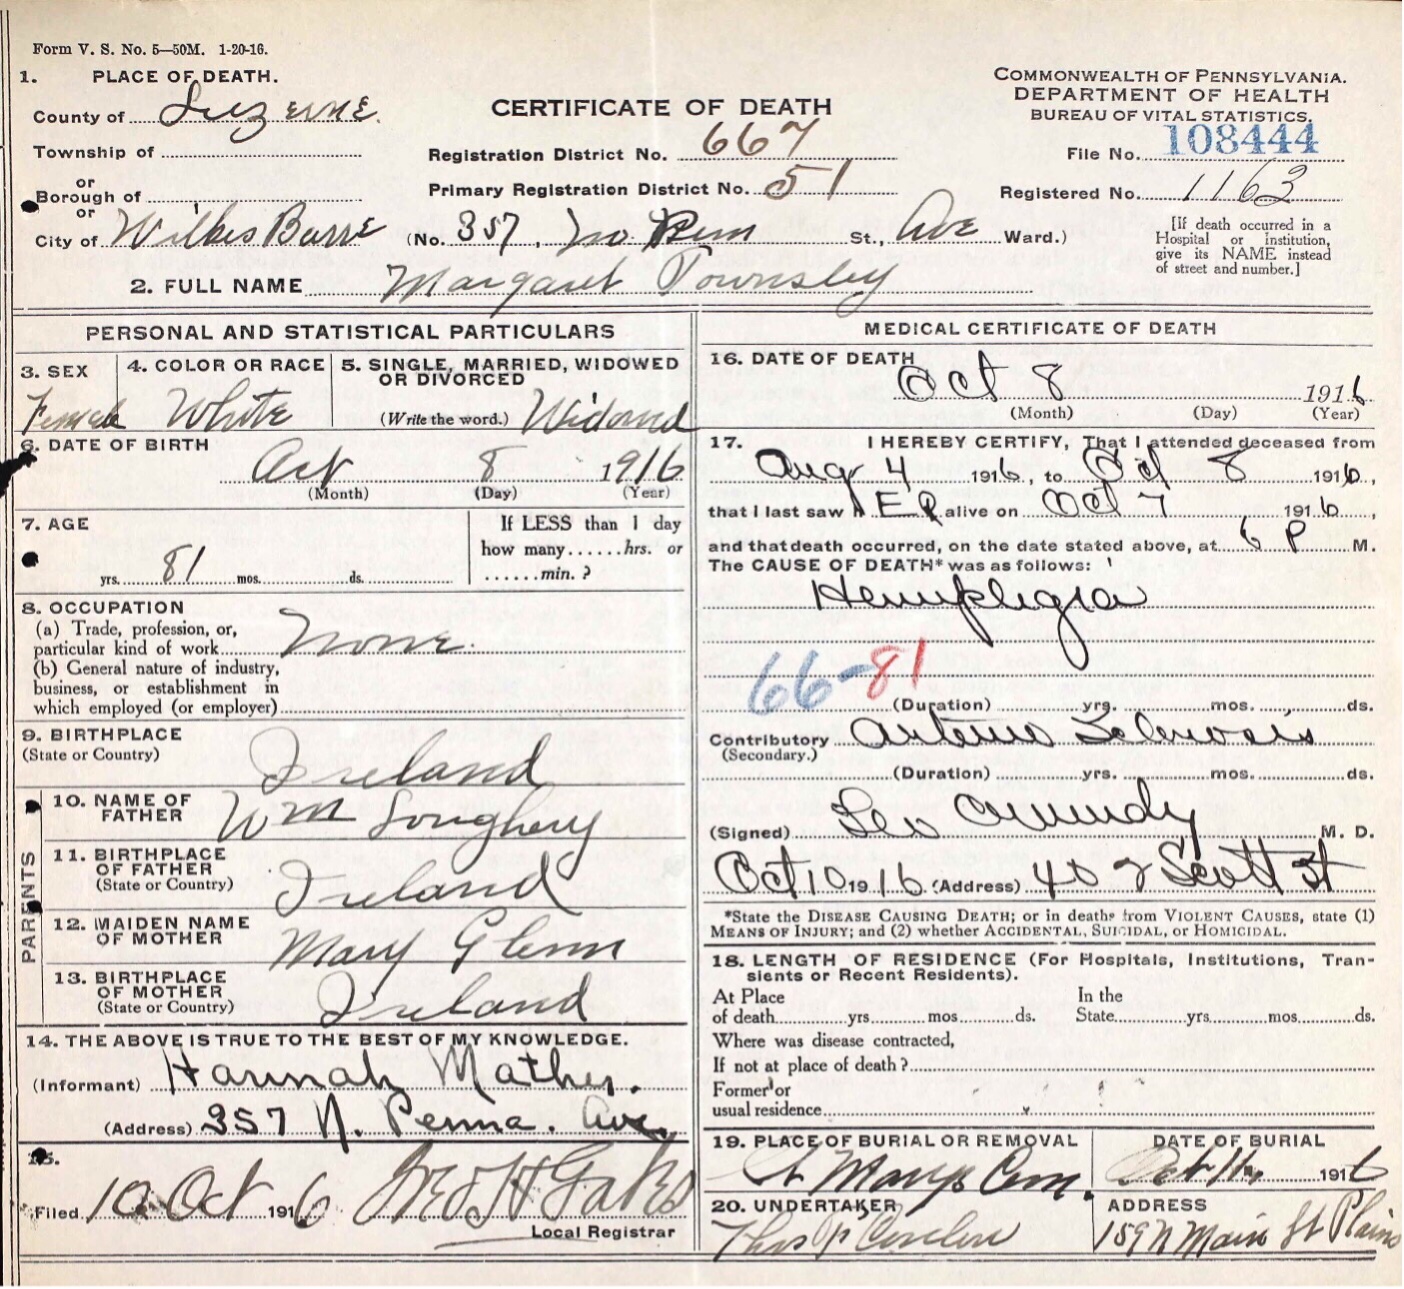 Form V. S. No. 5—50M. 1-20-16.
1. PLACE OF DEATH.
County of Luzerne
Township of
or
Borough of
or
City of Wilkes Barre
CERTIFICATE OF DEATH
Registration District No. 667
Primary Registration District No. 51
(No. 357, No Penn St., Ave Ward.)
COMMONWEALTH OF PENNSYLVANIA.
DEPARTMENT OF HEALTH
BUREAU OF VITAL STATISTICS.
File No. 108444
Registered No. 1163
[If death occurred in a
Hospital or institution,
give its NAME instead
of street and number.]
2. FULL NAME Margaret Townsley
PERSONAL AND STATISTICAL PARTICULARS
3. SEX
Female
4. COLOR OR RACE
White
5. SINGLE, MARRIED, WIDOWED
OR DIVORCED
(Write the word.) Widowed
6. DATE OF BIRTH
Oct 8 1916
(Month) (Day) (Year)
7. AGE
yrs. 81 mos. ds.
If LESS than 1 day
how many......hrs. or
......min. ?
8. OCCUPATION
(a) Trade, profession, or,
particular kind of work None.
(b) General nature of industry,
business, or establishment in
which employed (or employer)
9. BIRTHPLACE
(State or Country)
Ireland
PARENTS
10. NAME OF
FATHER
Wm Loughery
11. BIRTHPLACE
OF FATHER
(State or Country)
Ireland
12. MAIDEN NAME
OF MOTHER
Mary Glenn
13. BIRTHPLACE
OF MOTHER
(State or Country)
Ireland
14. THE ABOVE IS TRUE TO THE BEST OF MY KNOWLEDGE.
(Informant) Hannah Mathers.
(Address) 357 N. Penna. Ave,
15.
Filed 10 Oct 1916
Local Registrar
MEDICAL CERTIFICATE OF DEATH
16. DATE OF DEATH
Oct 8 1916
(Month) (Day) (Year)
17. I HEREBY CERTIFY, That I attended deceased from
Aug 4 1916, to Oct 8 1916,
that I last saw h ER alive on Oct 7 1916,
and that death occurred, on the date stated above, at 6 P M.
The CAUSE OF DEATH* was as follows:
Hemiplegia
66-81
(Duration) yrs. mos. ds.
Contributory Arterio Sclerosis
(Secondary.)
(Duration) yrs. mos. ds.
(Signed) Leo M. D.
Oct 10 1916 (Address) 402 Scott St
*State the DISEASE CAUSING DEATH; or in deaths from VIOLENT CAUSES, state (1)
MEANS OF INJURY; and (2) whether ACCIDENTAL, SUICIDAL, or HOMICIDAL.
18. LENGTH OF RESIDENCE (For Hospitals, Institutions, Tran-
sients or Recent Residents).
At Place
of death yrs mos. ds.
In the
State yrs. mos. ds.
Where was disease contracted,
If not at place of death ?
Former or
usual residence
19. PLACE OF BURIAL OR REMOVAL
St Marys Cem.
DATE OF BURIAL
Oct 11, 1916
20. UNDERTAKER
Thos P
ADDRESS
159 N Main St Plains